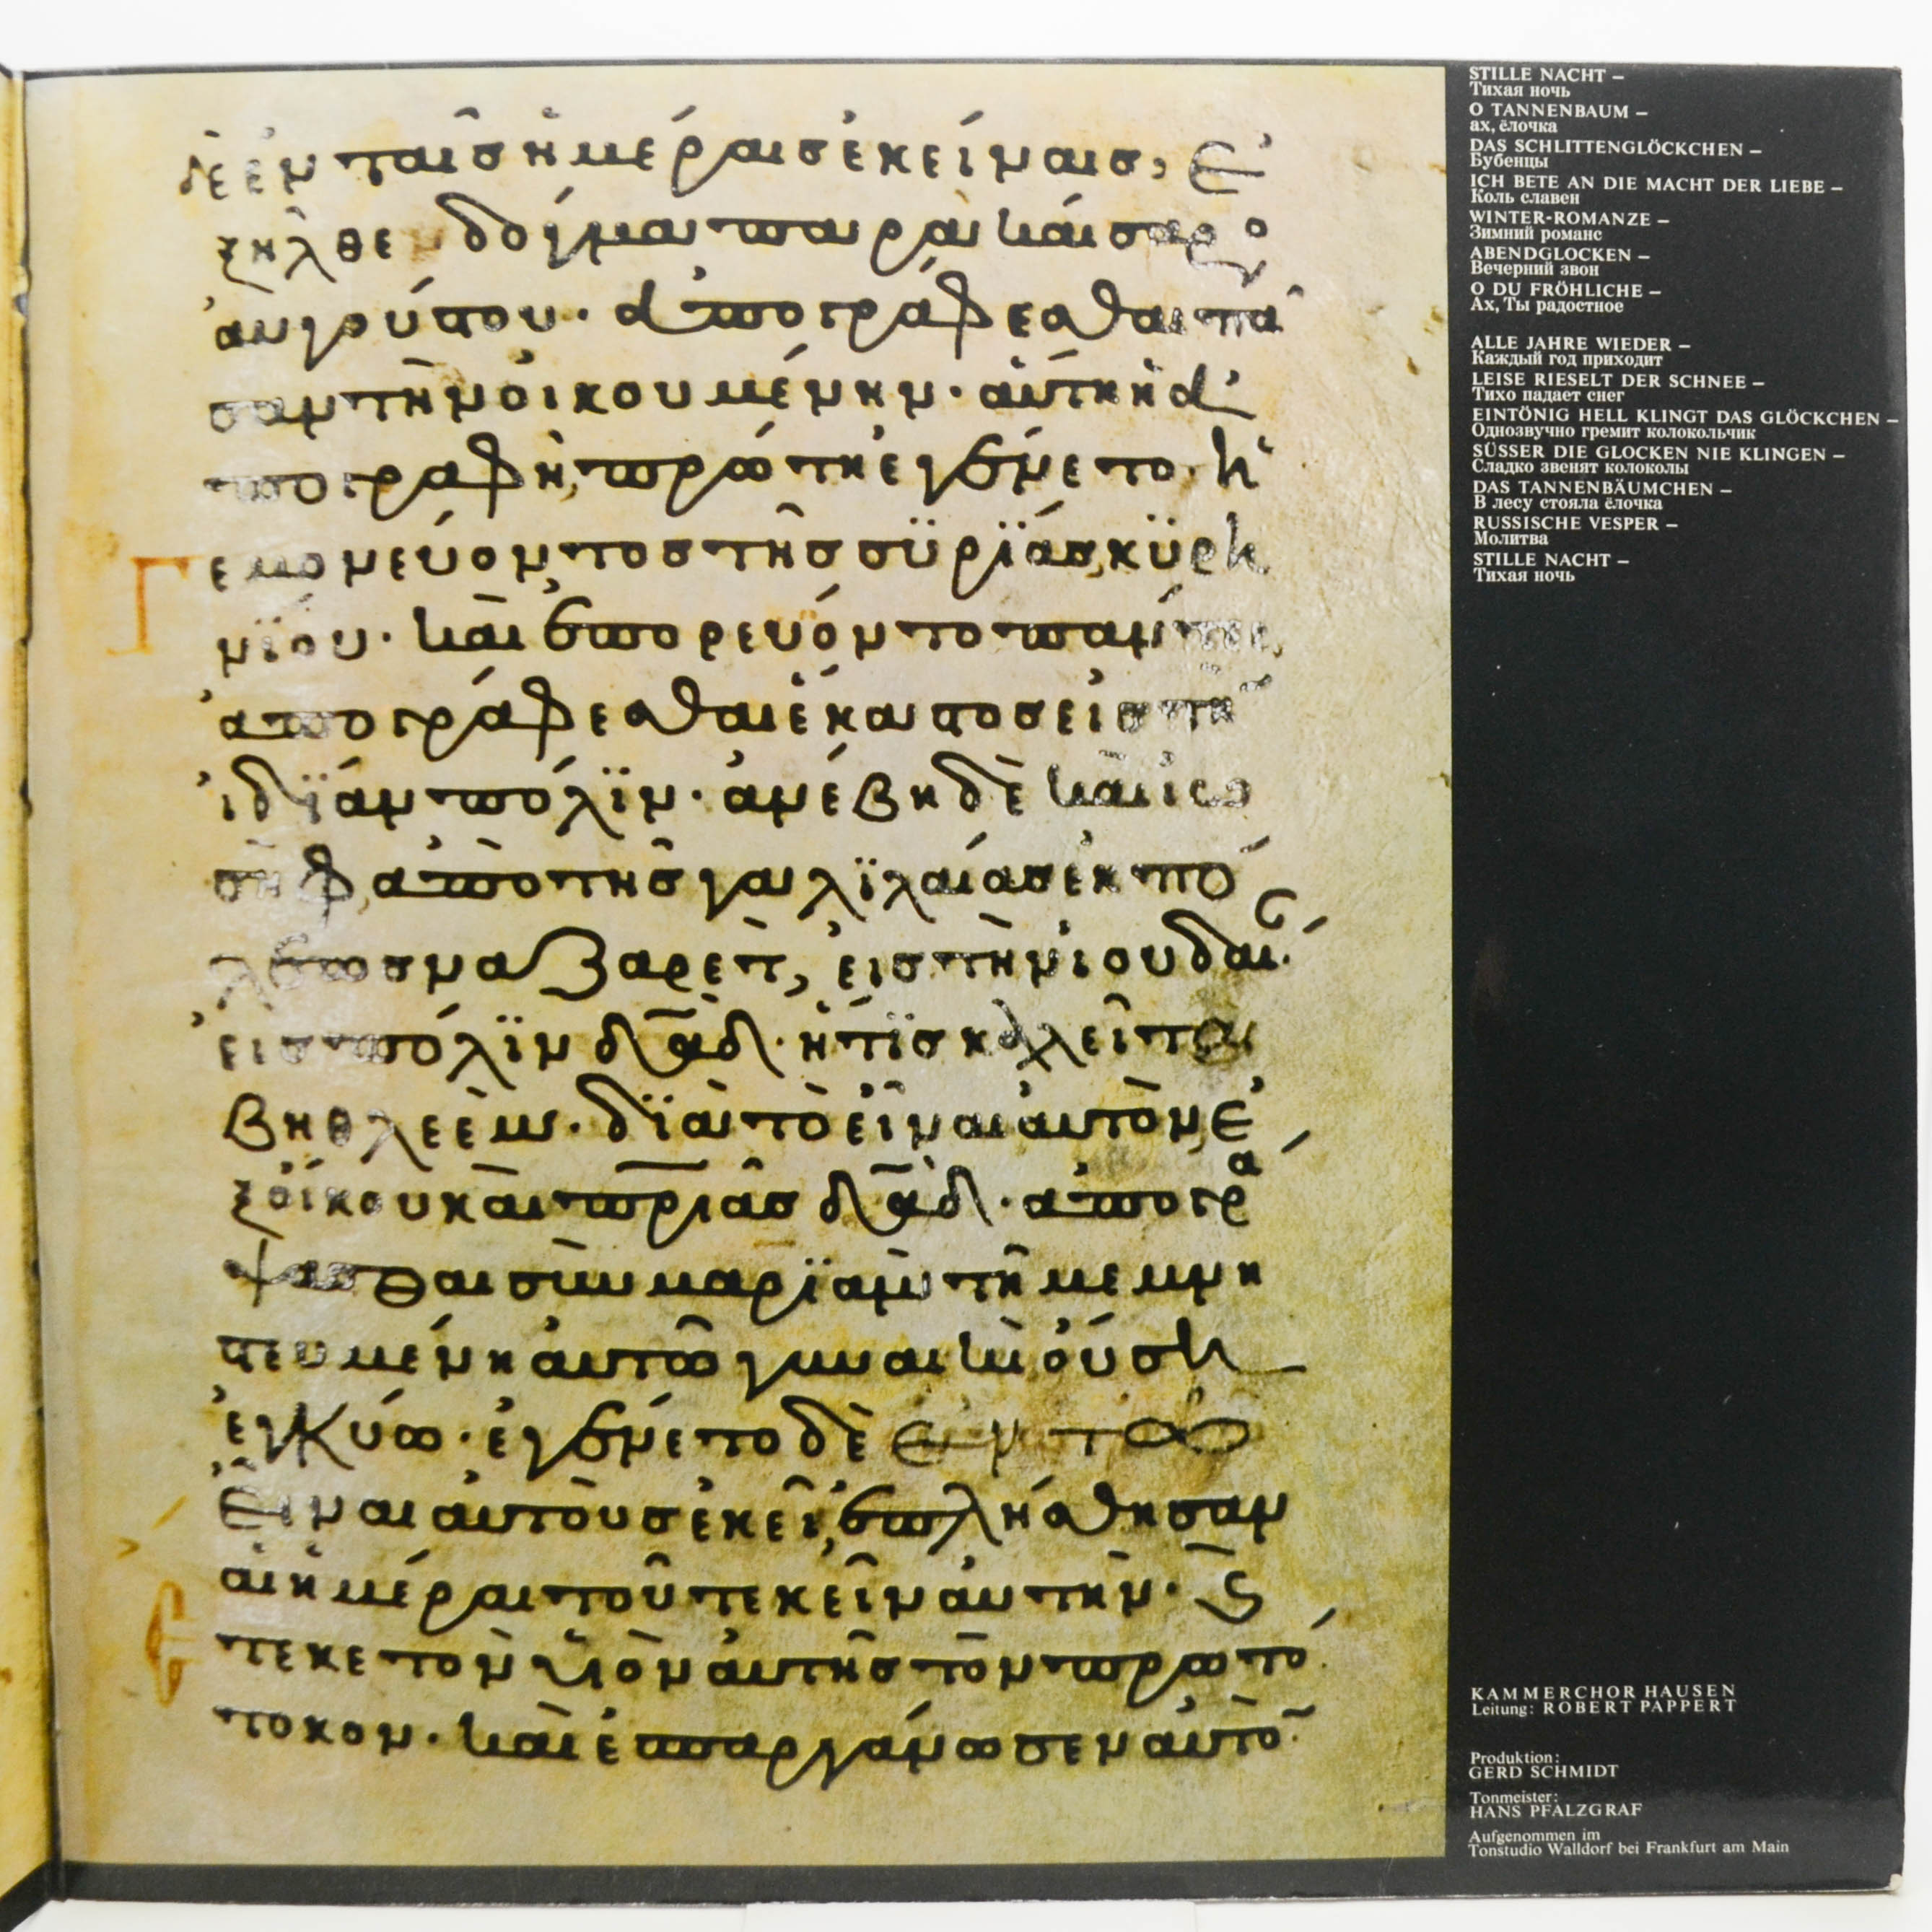 δὲ ἐν ταῖς ἡμέραις ἐκείναις, ἐ
ξῆλθε δόγμα παρὰ καίσαρο
αὐγούστου· ἀπογράφεσθαι πᾶ
σαν τὴν οἰκουμένην· αὕτη ἡ ἀ
πογραφὴ, πρώτη ἐγένετο ἡ
γεμονεύοντος τῆς συϊρίας, κυϊρη
νίου· καὶ ἐπορεύοντο πάντες,
ἀπογράφεσθαι ἕκαστος εἰς τὴν
ἰδίαν πόλϊν· ἀνέβη δὲ καὶ ἰω
σὴφ, ἀπὸ τῆς γαλϊλαίας ἐκ πό
λεως ναζαρὲτ, εἰς τὴν ἰουδαί
εἰς πόλϊν δα̅δ· ἥτϊς καλεῖται
βηθλεὲμ· δϊὰ τὸ εἶναι αὐτὸν ἐ
ξ οἴκου καὶ πριᾶς δα̅δ· ἀπογρά
ψασθαι σὺν μαρϊὰμ τῆ μεμνη
στευμένη αὐτῶ γυναικὶ οὔση
ἐγκύω· ἐγένετο δὲ ἐν τῶ
εἶναι αὐτοὺς ἐκεῖ, ἐπλήσθησαν
αἱ ἡμέραι τοῦ τεκεῖν αὐτήν· ϛ
ἔτεκε τὸν υἱὸν αὐτῆς τὸν πρωτό
τοκον· καὶ ἐσπαργάνωσεν αὐτὸ
STILLE NACHT –
Тихая ночь
O TANNENBAUM –
ах, ёлочка
DAS SCHLITTENGLÖCKCHEN –
Бубенцы
ICH BETE AN DIE MACHT DER LIEBE –
Коль славен
WINTER-ROMANZE –
Зимний романс
ABENDGLOCKEN –
Вечерний звон
O DU FRÖHLICHE –
Ах, Ты радостное
ALLE JAHRE WIEDER –
Каждый год приходит
LEISE RIESELT DER SCHNEE –
Тихо падает снег
EINTÖNIG HELL KLINGT DAS GLÖCKCHEN –
Однозвучно гремит колокольчик
SÜSSER DIE GLOCKEN NIE KLINGEN –
Сладко звенят колоколы
DAS TANNENBÄUMCHEN –
В лесу стояла ёлочка
RUSSISCHE VESPER –
Молитва
STILLE NACHT –
Тихая ночь
KAMMERCHOR HAUSEN
Leitung: ROBERT PAPPERT
Produktion:
GERD SCHMIDT
Tonmeister:
HANS PFALZGRAF
Aufgenommen im
Tonstudio Walldorf bei Frankfurt am Main